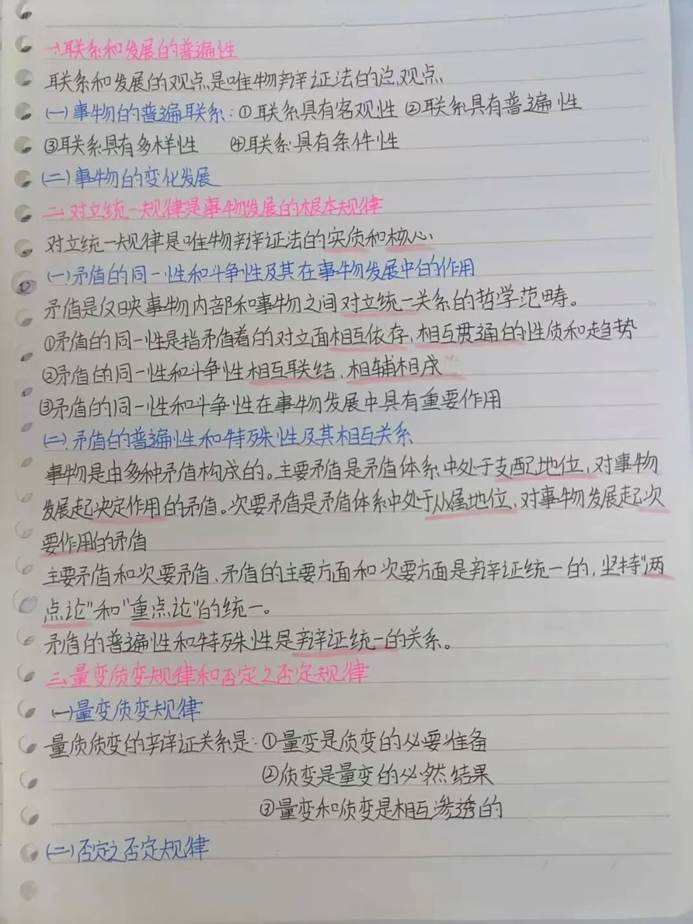 一.联系和发展的普遍性
联系和发展的观点是唯物辩证法的总观点
(一)事物的普遍联系:①联系具有客观性 ②联系具有普遍性
③联系具有多样性 ④联系具有条件性
(二)事物的变化发展
二.对立统一规律是事物发展的根本规律
对立统一规律是唯物辩证法的实质和核心
(一)矛盾的同一性和斗争性及其在事物发展中的作用
矛盾是反映事物内部和事物之间对立统一关系的哲学范畴。
①矛盾的同一性是指矛盾着的对立面相互依存,相互贯通的性质和趋势
②矛盾的同一性和斗争性相互联结,相辅相成
③矛盾的同一性和斗争性在事物发展中具有重要作用
(二).矛盾的普遍性和特殊性及其相互关系
事物是由多种矛盾构成的。主要矛盾是矛盾体系中处于支配地位,对事物
发展起决定作用的矛盾。次要矛盾是矛盾体系中处于从属地位,对事物发展起次
要作用的矛盾
主要矛盾和次要矛盾、矛盾的主要方面和次要方面是辩证统一的,坚持"两
点论"和"重点论"的统一。
矛盾的普遍性和特殊性是辩证统一的关系。
三.量变质变规律和否定之否定规律
(一)量变质变规律
量质质变的辩证关系是:①量变是质变的必要准备
②质变是量变的必然结果
③量变和质变是相互渗透的
(二)否定之否定规律